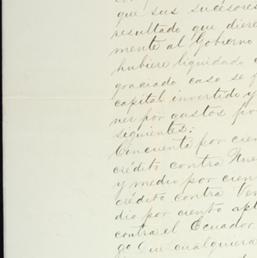 que sus sucesores
resultado que diere
mente al Gobierno
hubiere liquidado
graciado caso se
capital invertido y
ner por gastos
siguientes:
Cincuenta por cien
crédito contra
y medio por cien
crédito contra
dio por ciento
contra el Ecuador
9o Que cualquiera